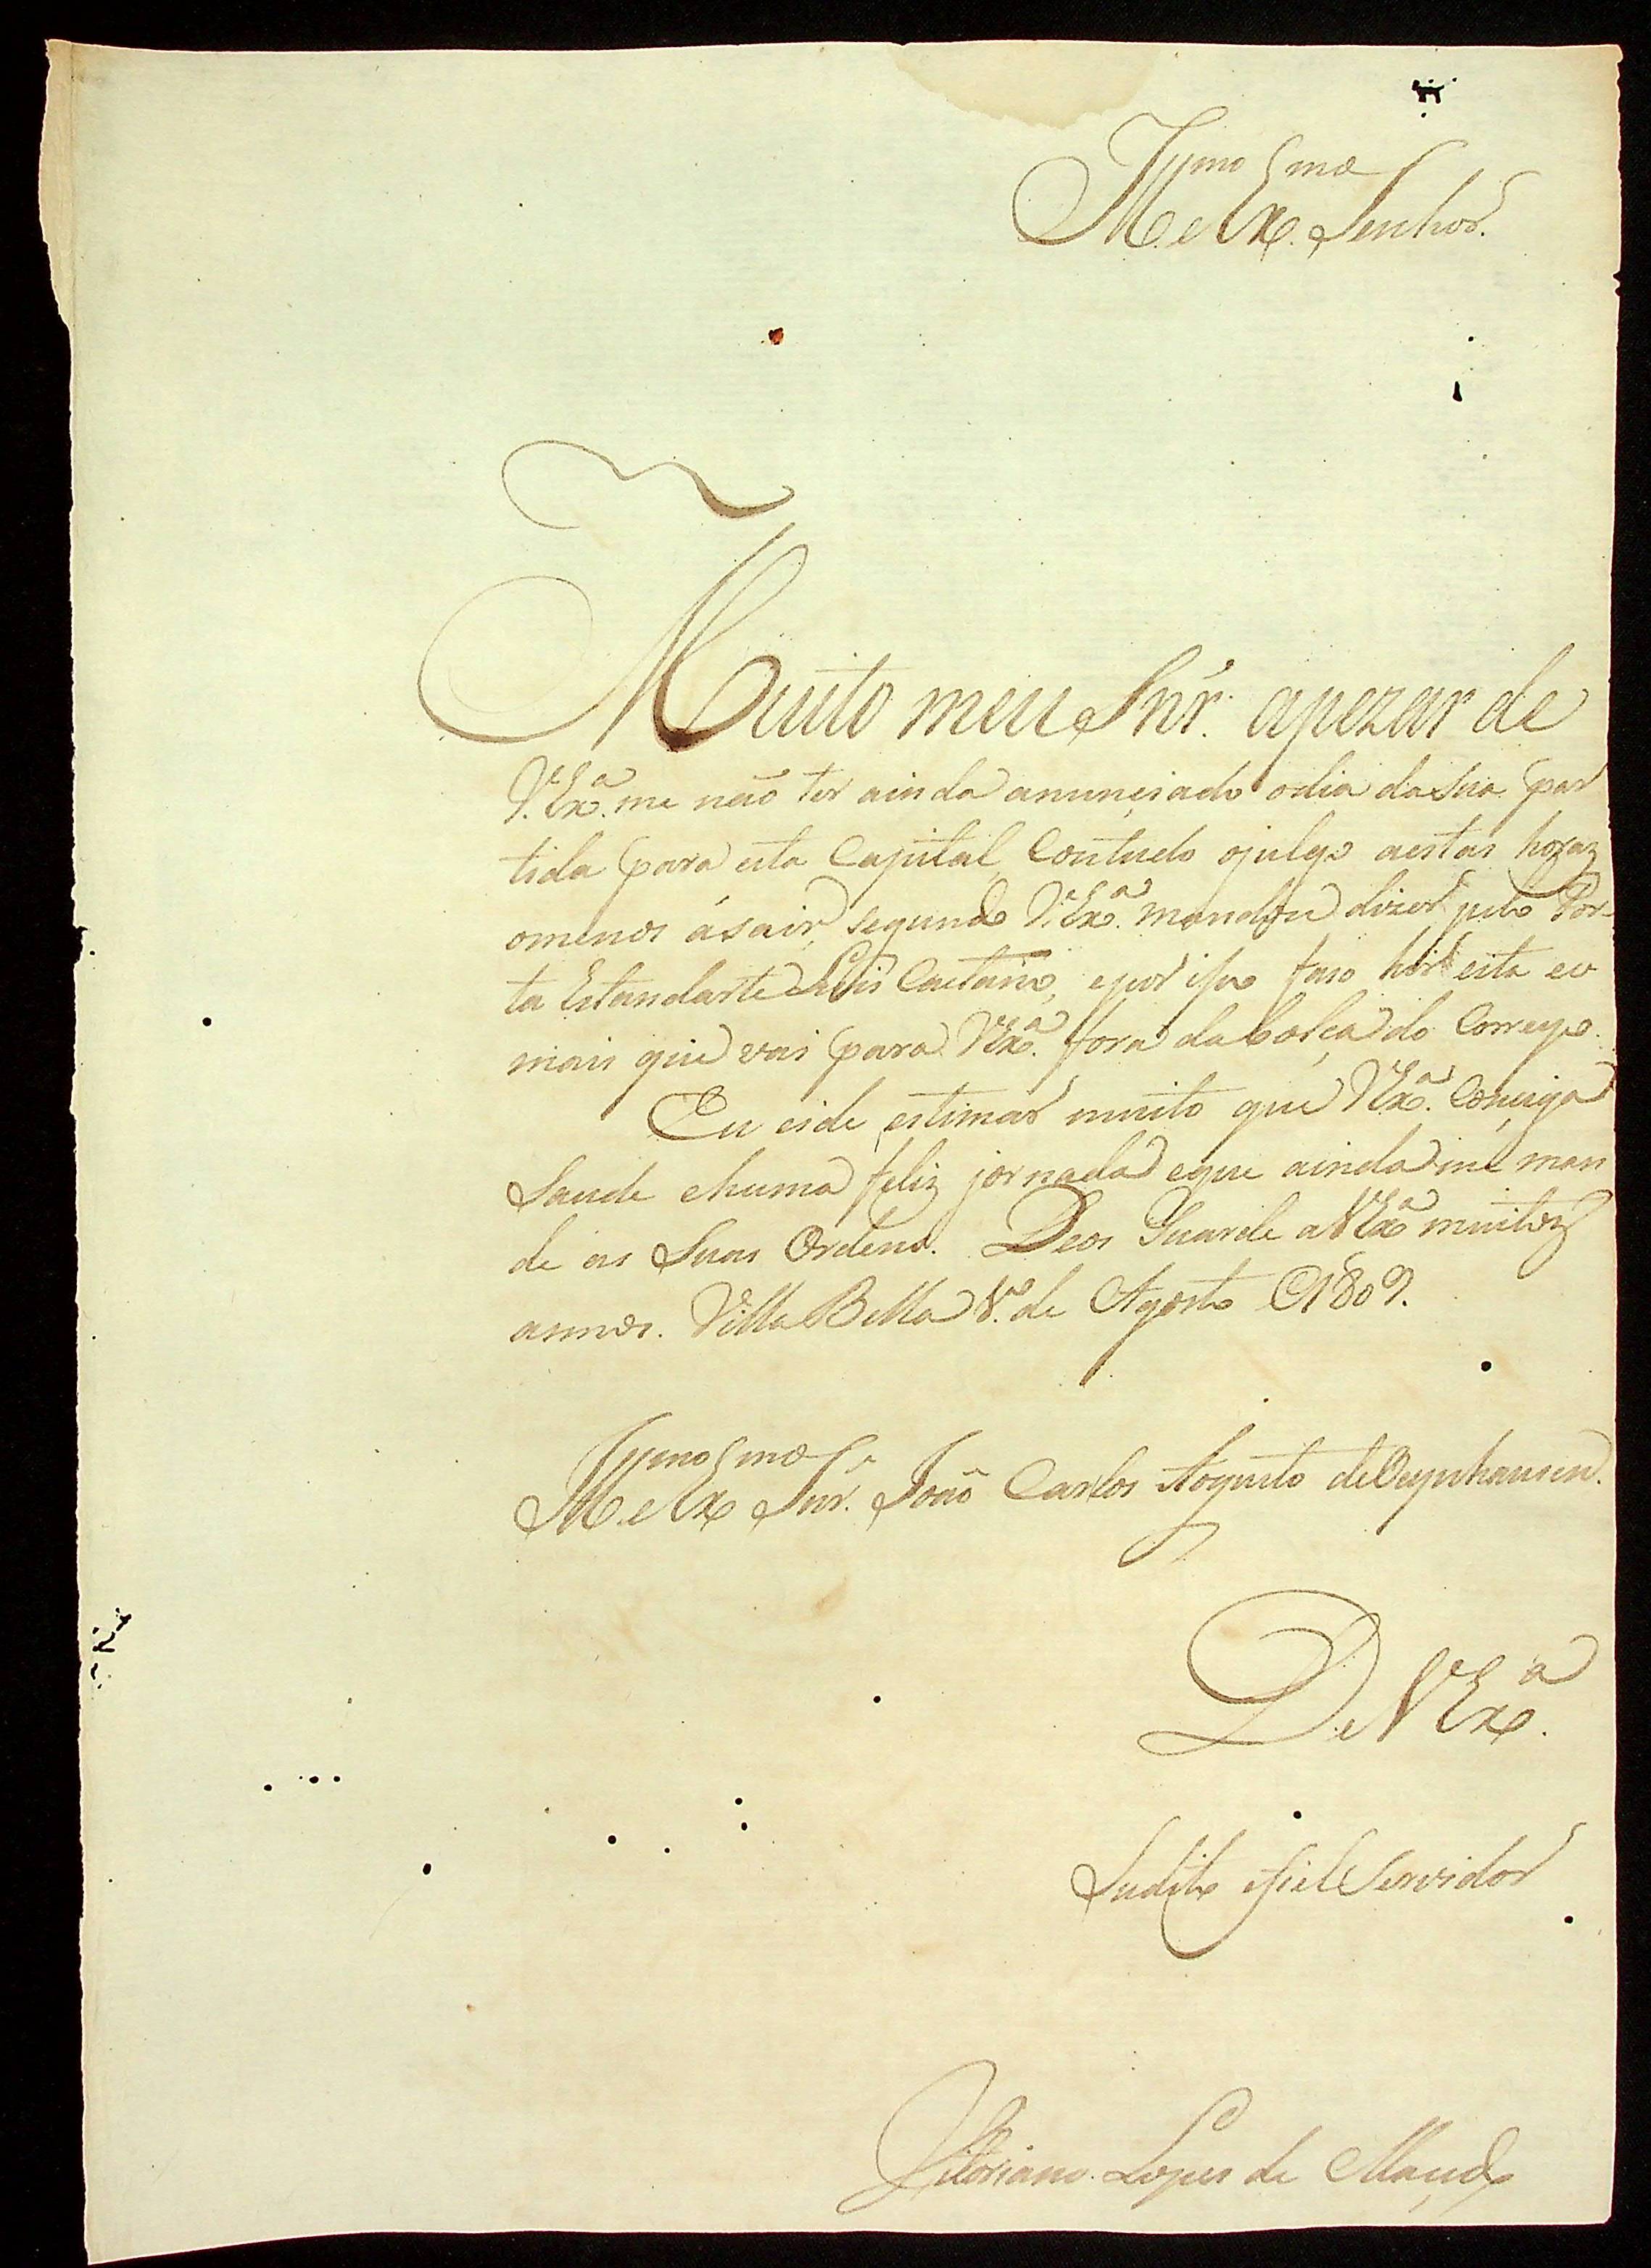 Illmo e Exmo Senhor.
Muito meu Snr. apezar de
V. Exa. me não ter ainda anunçiado o dia da sua par
tida para esta Capital, Contudo o julgo a estas horaz
o menos á sair, segundo V. Exa. mandou dizer pelo Por-
ta Estandarte Luis Caetano, e por iso faso hir esta e o
mais que vai para V. Exa. fora da bolça do Correyo.
Eu eide estimar muito que V. Exa. Conçiga
Saude e huma feliz jornada e que ainda me man
de as Suas Ordens. Deos Guarde a V. Exa. muitoz
annos. Villa Bella 1o. de Agosto 1809.
Illmo e Exmo Snr. João Carlos Augusto de Oeynhausen.
De V. Exa.
Sudito e fiel Servidor
Vitoriano Lopes de